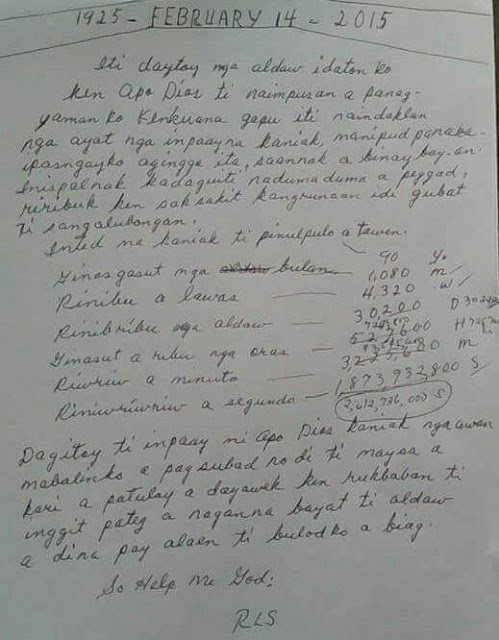 1925 - FEBRUARY 14 - 2015
Iti daytoy nga aldaw idaton ko
ken Apo Dios ti naimpusan a panag-
yaman ko Kenkuana gapu iti naindaklan
nga ayat nga inpaayna kaniak, manipud panaka-
ipasngayko agingga ita, saannak a binaybay-an.
Inispalnak kadaguiti, naduma duma a peggad,
riribuk ken saksakit kangrunaan idi gubat
ti sangalubongan.
Inted na kaniak ti pinulpulo a tawen. 90 Y.
Ginasgasut nga bulan 1,080 m
Rinibu a lawas 4,320 w
Rinibribu nga aldaw 30200 D
Ginasut a ribu nga oras H
Riwriw a minuto m
Riniwriwriw a segundo - 1,873,932,800 S
2,612,736,000 S
Dagitoy ti inpaay ni Apo Dios kaniak nga awan
mabalinko a pagsubad no di ti maysa a
kari a patulay a dayawek ken rukbaban ti
inggit pateg a naganna bayat ti aldaw
a dina pay alaen ti bulodko a biag.
So Help Me God:
RLS